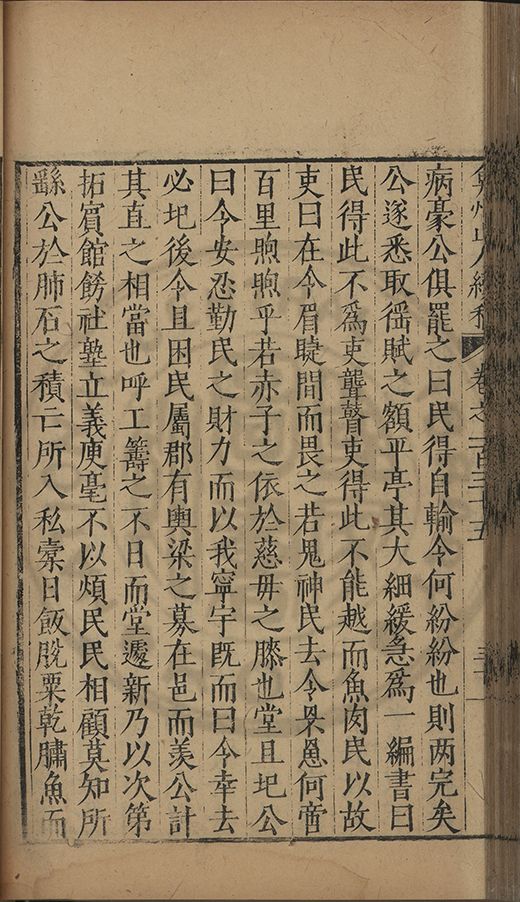 弇州山人續稿 卷之一百三十五
病豪公俱罷之曰民得自輸今何紛紛也則两完矣
公遂悉取徭賦之額平亭其大細緩急爲一編書曰
民得此不爲吏聾瞽吏得此不能越而魚肉民以故
吏曰在令眉睫間而畏之若鬼神民去令罘罳何啻
百里煦煦乎若赤子之依於慈毋之膝也堂且圮公
曰令安忍勤民之財力而以我寧宇既而曰令幸去
必圮後令且困民屬郡有輿梁之募在邑而羨公計
其直之相當也呼工籌之不日而堂遽新乃以次第
拓賓館餝社塾立義庾毫不以煩民民相顧莫知所
繇公於肺石之積亡所入私槖日飯脫粟乾鱐魚而